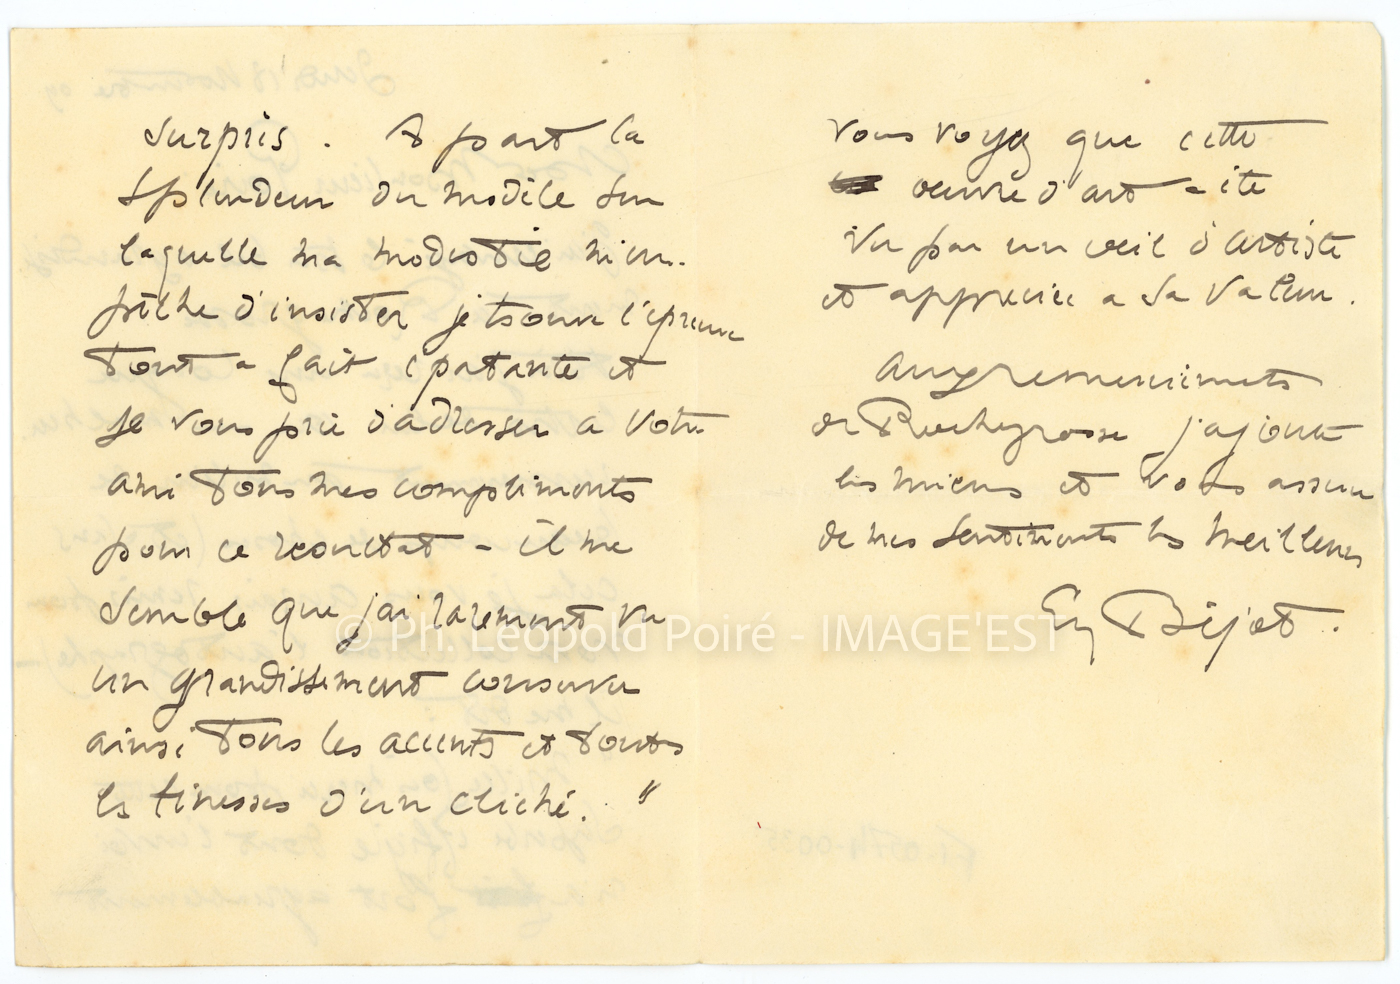 surpris. A part la
splendeur du modèle sur
laquelle ma modestie m'em-
pêche d'insister je trouve l'épreuve
tout a fait épatante et
je vous prie d'adresser a votre
ami tous mes compliments
pour ce resultat - il me
semble que j'ai rarement vu
un grandissement conserver
ainsi tous les accents et toutes
les finesses d'un cliché. "
vous voyez que cette
oeuvre d'art a été
vu par un oeil d'artiste
et appreciée a sa valeur.
aux remerciements
de Rochegrosse j'ajoute
les miens et vous assure
de mes sentiments les meilleurs
Eug Béjot.
© Ph. Léopold Poiré - IMAGE'EST